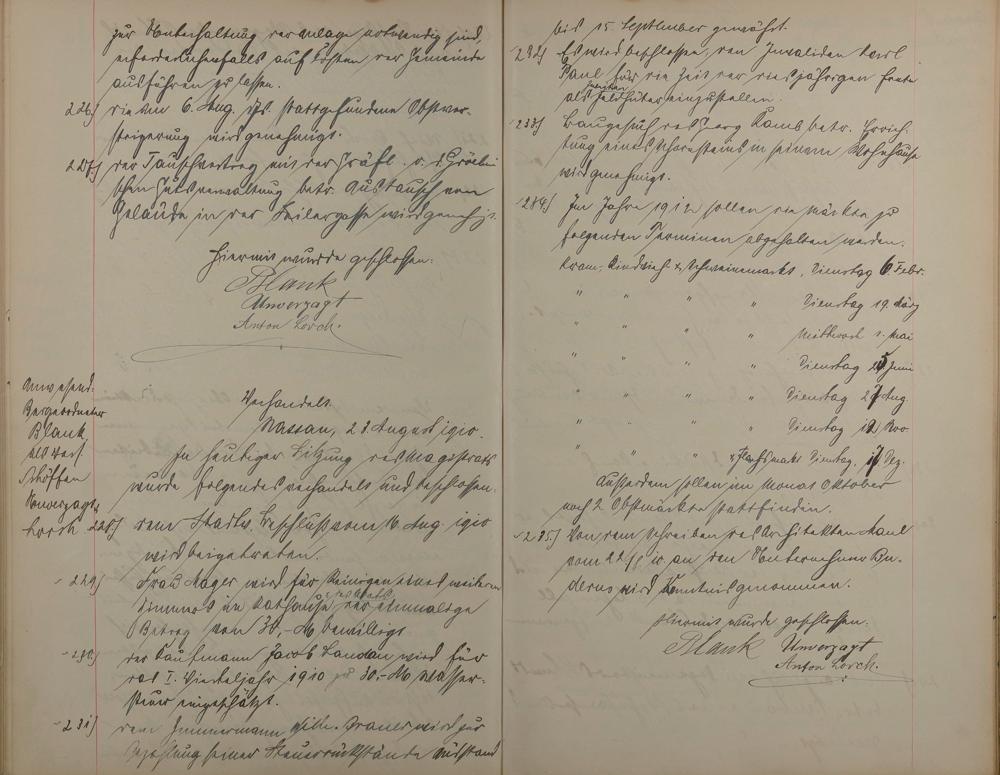 zur Unterhaltung der Anlage notwendig sind,
erforderlichenfalls auf Kosten der Gemeinde
ausführen zu lassen.
226) die am 6. Aug. ds. stattgefundene Obstver-
steigerung wird genehmigt.
227) der Tauschvertrag mit der Gräfl. v. d. Gröben
schen Gutsverwaltung betr. Austausch von
Gelände in der Seilergasse wird genehmigt.
Hiermit wurde geschlossen.
Blank
Unverzagt
Anton Lorch.
Anwesend:
Beigeordneter
Blank
als Vors.
Schöffen
Unverzagt,
Lorch.
Verhandelt.
Nassau, 23. August 1910.
In heutiger Sitzung des Magistrats
wurde folgendes verhandelt und beschlossen.
228) dem Stadtv. Beschluß vom 16. Aug. 1910
wird beigetreten.
229) Frau Mager wird für Reinigen eines weiteren
Zimmers im Rathause der einmalige
Betrag von 30,- M bewilligt.
230) der Kaufmann Jacob Landau wird für
das I. Vierteljahr 1910 zu 30.- M Wasser-
steuer eingeschätzt.
231) dem Zimmermann Wilh. wird zur
Bezahlung seiner Steuerrückstände Ausstand
bis 15. September gewährt.
232) Es wird beschlossen, den Invaliden Karl
Paul für die Zeit der diesjährigen Ernte
als zweiten Feldhüter einzustellen.
233) Baugesuch des Georg Kamb betr. Errich-
tung eines Schornsteins in seinem Wohnhause
wird genehmigt.
234) Im Jahre 1912 sollen die Märkte zu
folgenden Terminen abgehalten werden.
Kram-, Rindvieh- & Schweinemarkt, Dienstag 6. Febr.
" " " " Dienstag 19. März
" " " " Mittwoch 1. Mai
" " " " Dienstag Juni
" " " " Dienstag 27 Aug.
" " " " Dienstag 12 Nov
" " " & Flachsmarkt Dienstag. 17 Dez.
Ausserdem sollen im Monat Oktober
noch 2 Obstmärkte stattfinden.
235) Von dem Schreiben des Architekten
vom 22/8 10 an den Unternehmer Bu-
derus wird Kenntnis genommen.
Hiermit wurde geschlossen.
Blank Unverzagt
Anton Lorch.